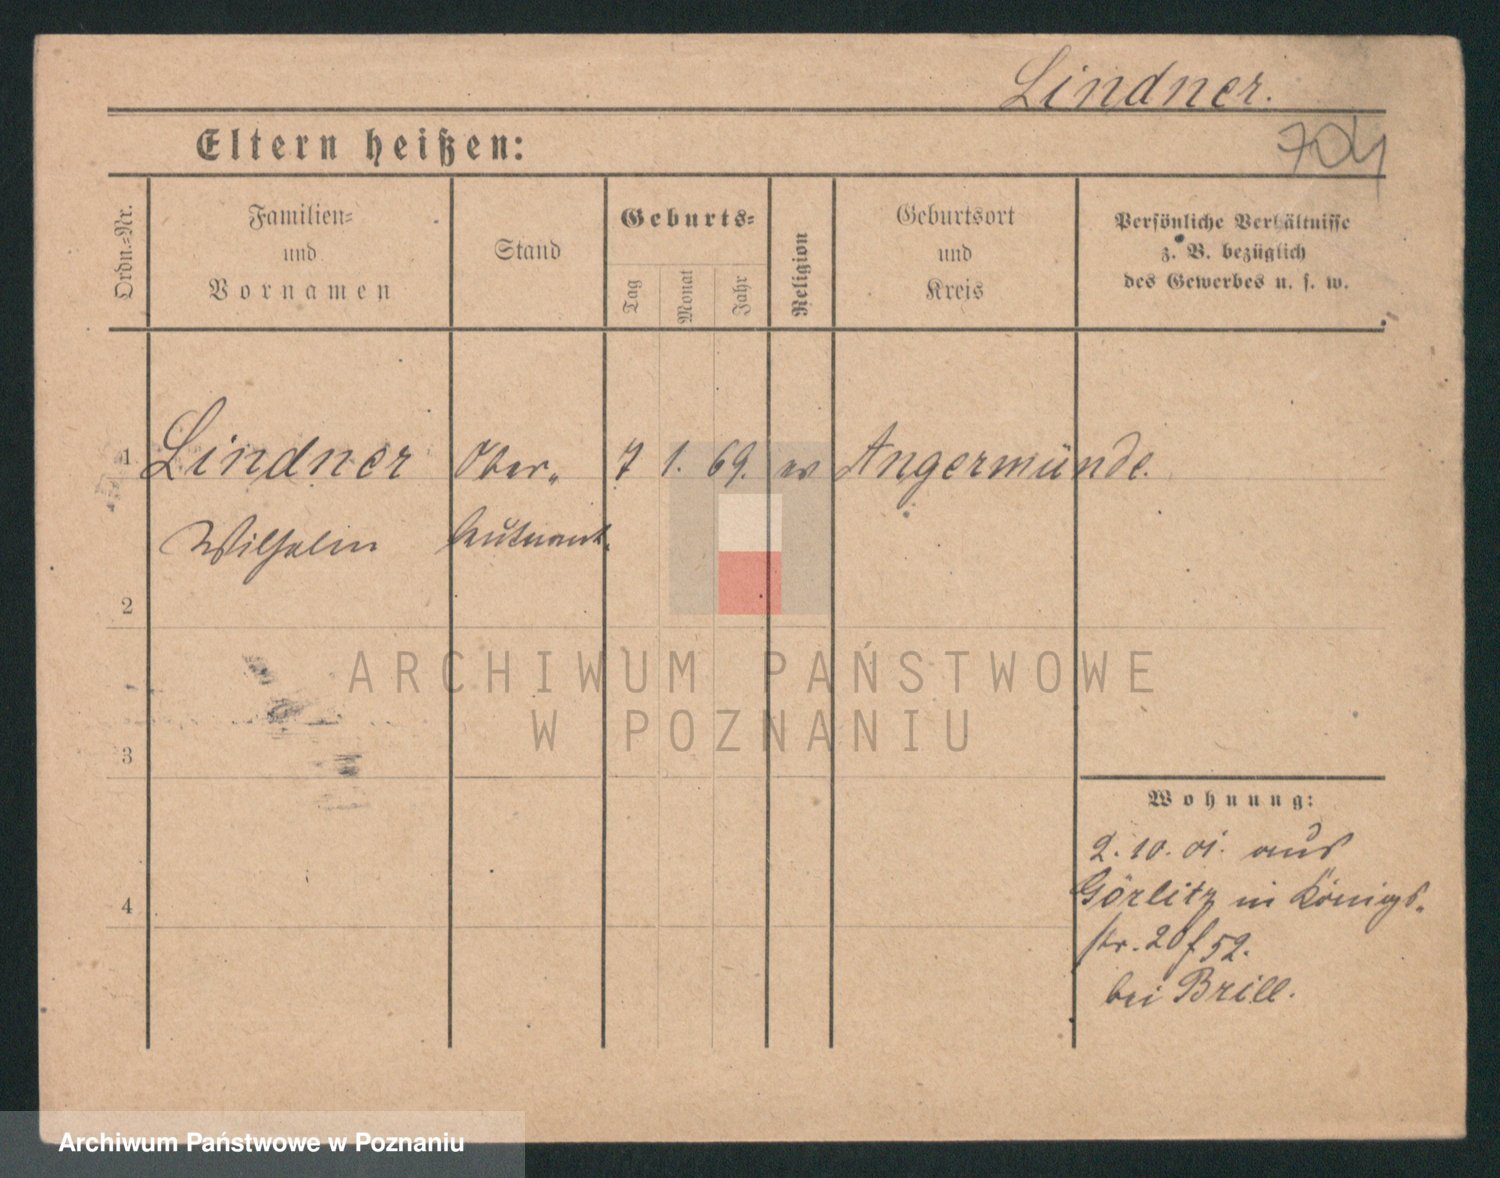 Lindner.
704
Eltern heißen:
Ordn.=Nr.
Familien=
und
Vornamen
Stand
Geburts=
Tag
Monat
Jahr
Religion
Geburtsort
und
Kreis
Persönliche Verhältnisse
z. B. bezüglich
des Gewerbes u. s. w.
1 Lindner Ober„ 7 1. 69. ev Angermünde.
Wilhelm leutnant.
2
ARCHIWUM PAŃSTWOWE
W POZNANIU
3
Wohnung:
2. 10. 01. aus
Görlitz in Königs„
4
str. 20 52.
bei Brill.
Archiwum Państwowe w Poznaniu